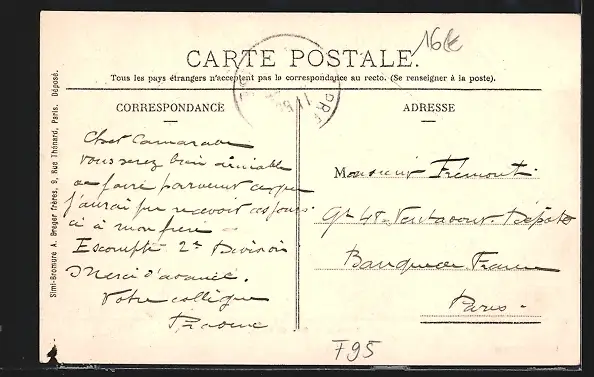 16€
CARTE POSTALE.
Tous les pays étrangers n'acceptent pas la correspondance au recto. (Se renseigner à la poste).
CORRESPONDANCE
ADRESSE
Simi-Bromure A. Breger frères, 9, Rue Thénard, Paris. Déposé.
Cher Camarade
vous serez bien aimable
de faire parvenir ce que
j'aurai pu recevoir ces jours
ci à mon frère
Escompte 2e Division
Merci d'avance.
Votre collègue
Monsieur Fremont
48 Ventadour. Dépôts
Banque de France
Paris.
F95